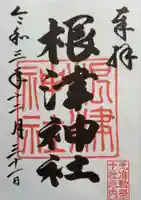 奉拝
根津神社
根津神社
令和三年十二月三十一日